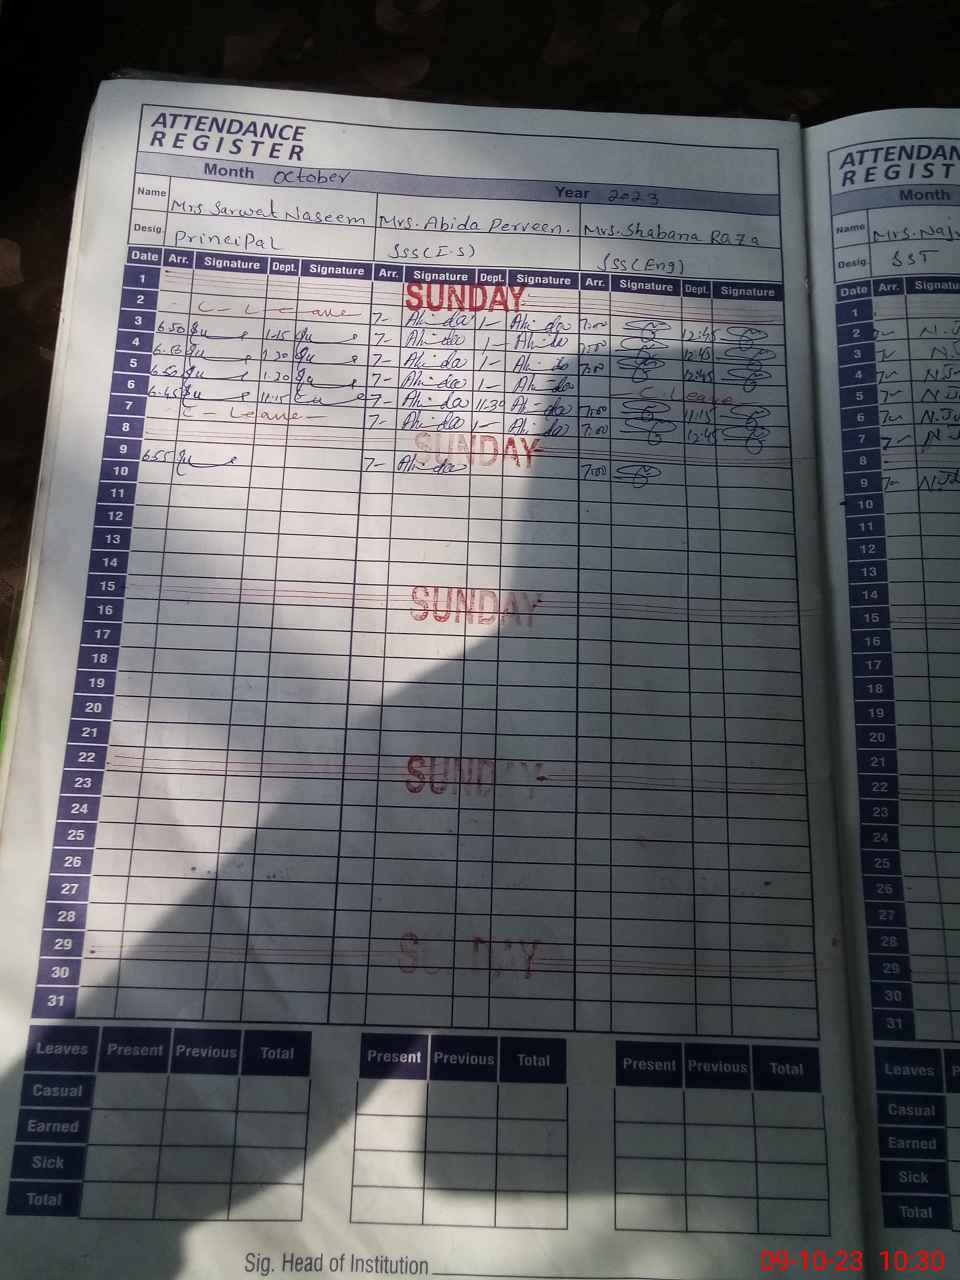 ATTENDANCE
REGISTER
Month October Year 2023
Name Mrs Sarwat Naseem Mrs. Abida Perveen. Mrs. Shabana Raza
Desig. Principal SSS(I.S) SSS(Eng)
Date Arr. Signature Dept. Signature Arr. Signature Dept. Signature Arr. Signature Dept. Signature
1 SUNDAY
2 C-Leave 7- Abida 1- Abida 7:00 12:45
3 6.50 1.15 7- Abida 1- Abida 7:00 12:45
4 1.20 7- Abida 1- Abida 7:00 12:45
5 6.50 1.20 7- Abida 1- Abida C. Leave
6 6.45 11:15 7- Abida 11:30 Abida 7:00 11:15
7 C-Leave- 7- Abida 1- Abida 7:00 12:45
8 SUNDAY
9 6.55 7- Abida 7:00
10
11
12
13
14
15 SUNDAY
16
17
18
19
20
21
22 SUNDAY
23
24
25
26
27
28
29 SUNDAY
30
31
Leaves Present Previous Total Present Previous Total Present Previous Total
Casual
Earned
Sick
Total
Sig. Head of Institution
ATTENDAN
REGIST
Month
Name Mrs. Naj
Desig. SST
Date Arr. Signatu
1
2 7-
3 7-
4 7-
5 7-
6 7-
7 7-
8
9 7-
10
11
12
13
14
15
16
17
18
19
20
21
22
23
24
25
26
27
28
29
30
31
Leaves P
Casual
Earned
Sick
Total
09-10-23 10:30